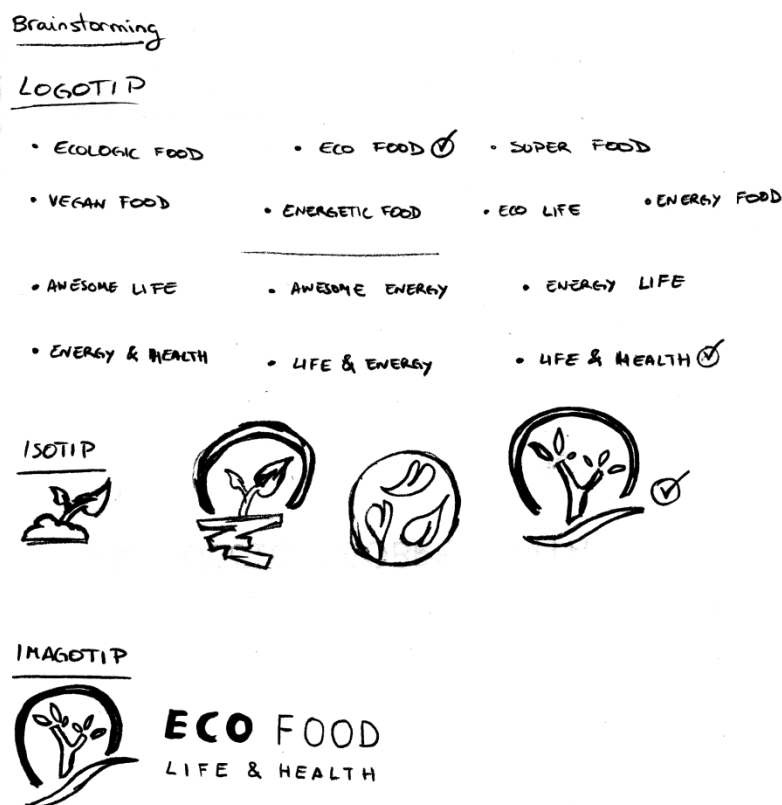 Brainstorming
LOGOTIP
• ECOLOGIC FOOD • ECO FOOD • SUPER FOOD
• VEGAN FOOD • ENERGETIC FOOD • ECO LIFE • ENERGY FOOD
• AWESOME LIFE • AWESOME ENERGY • ENERGY LIFE
• ENERGY & HEALTH • LIFE & ENERGY • LIFE & HEALTH
ISOTIP
IMAGOTIP
ECO FOOD
LIFE & HEALTH